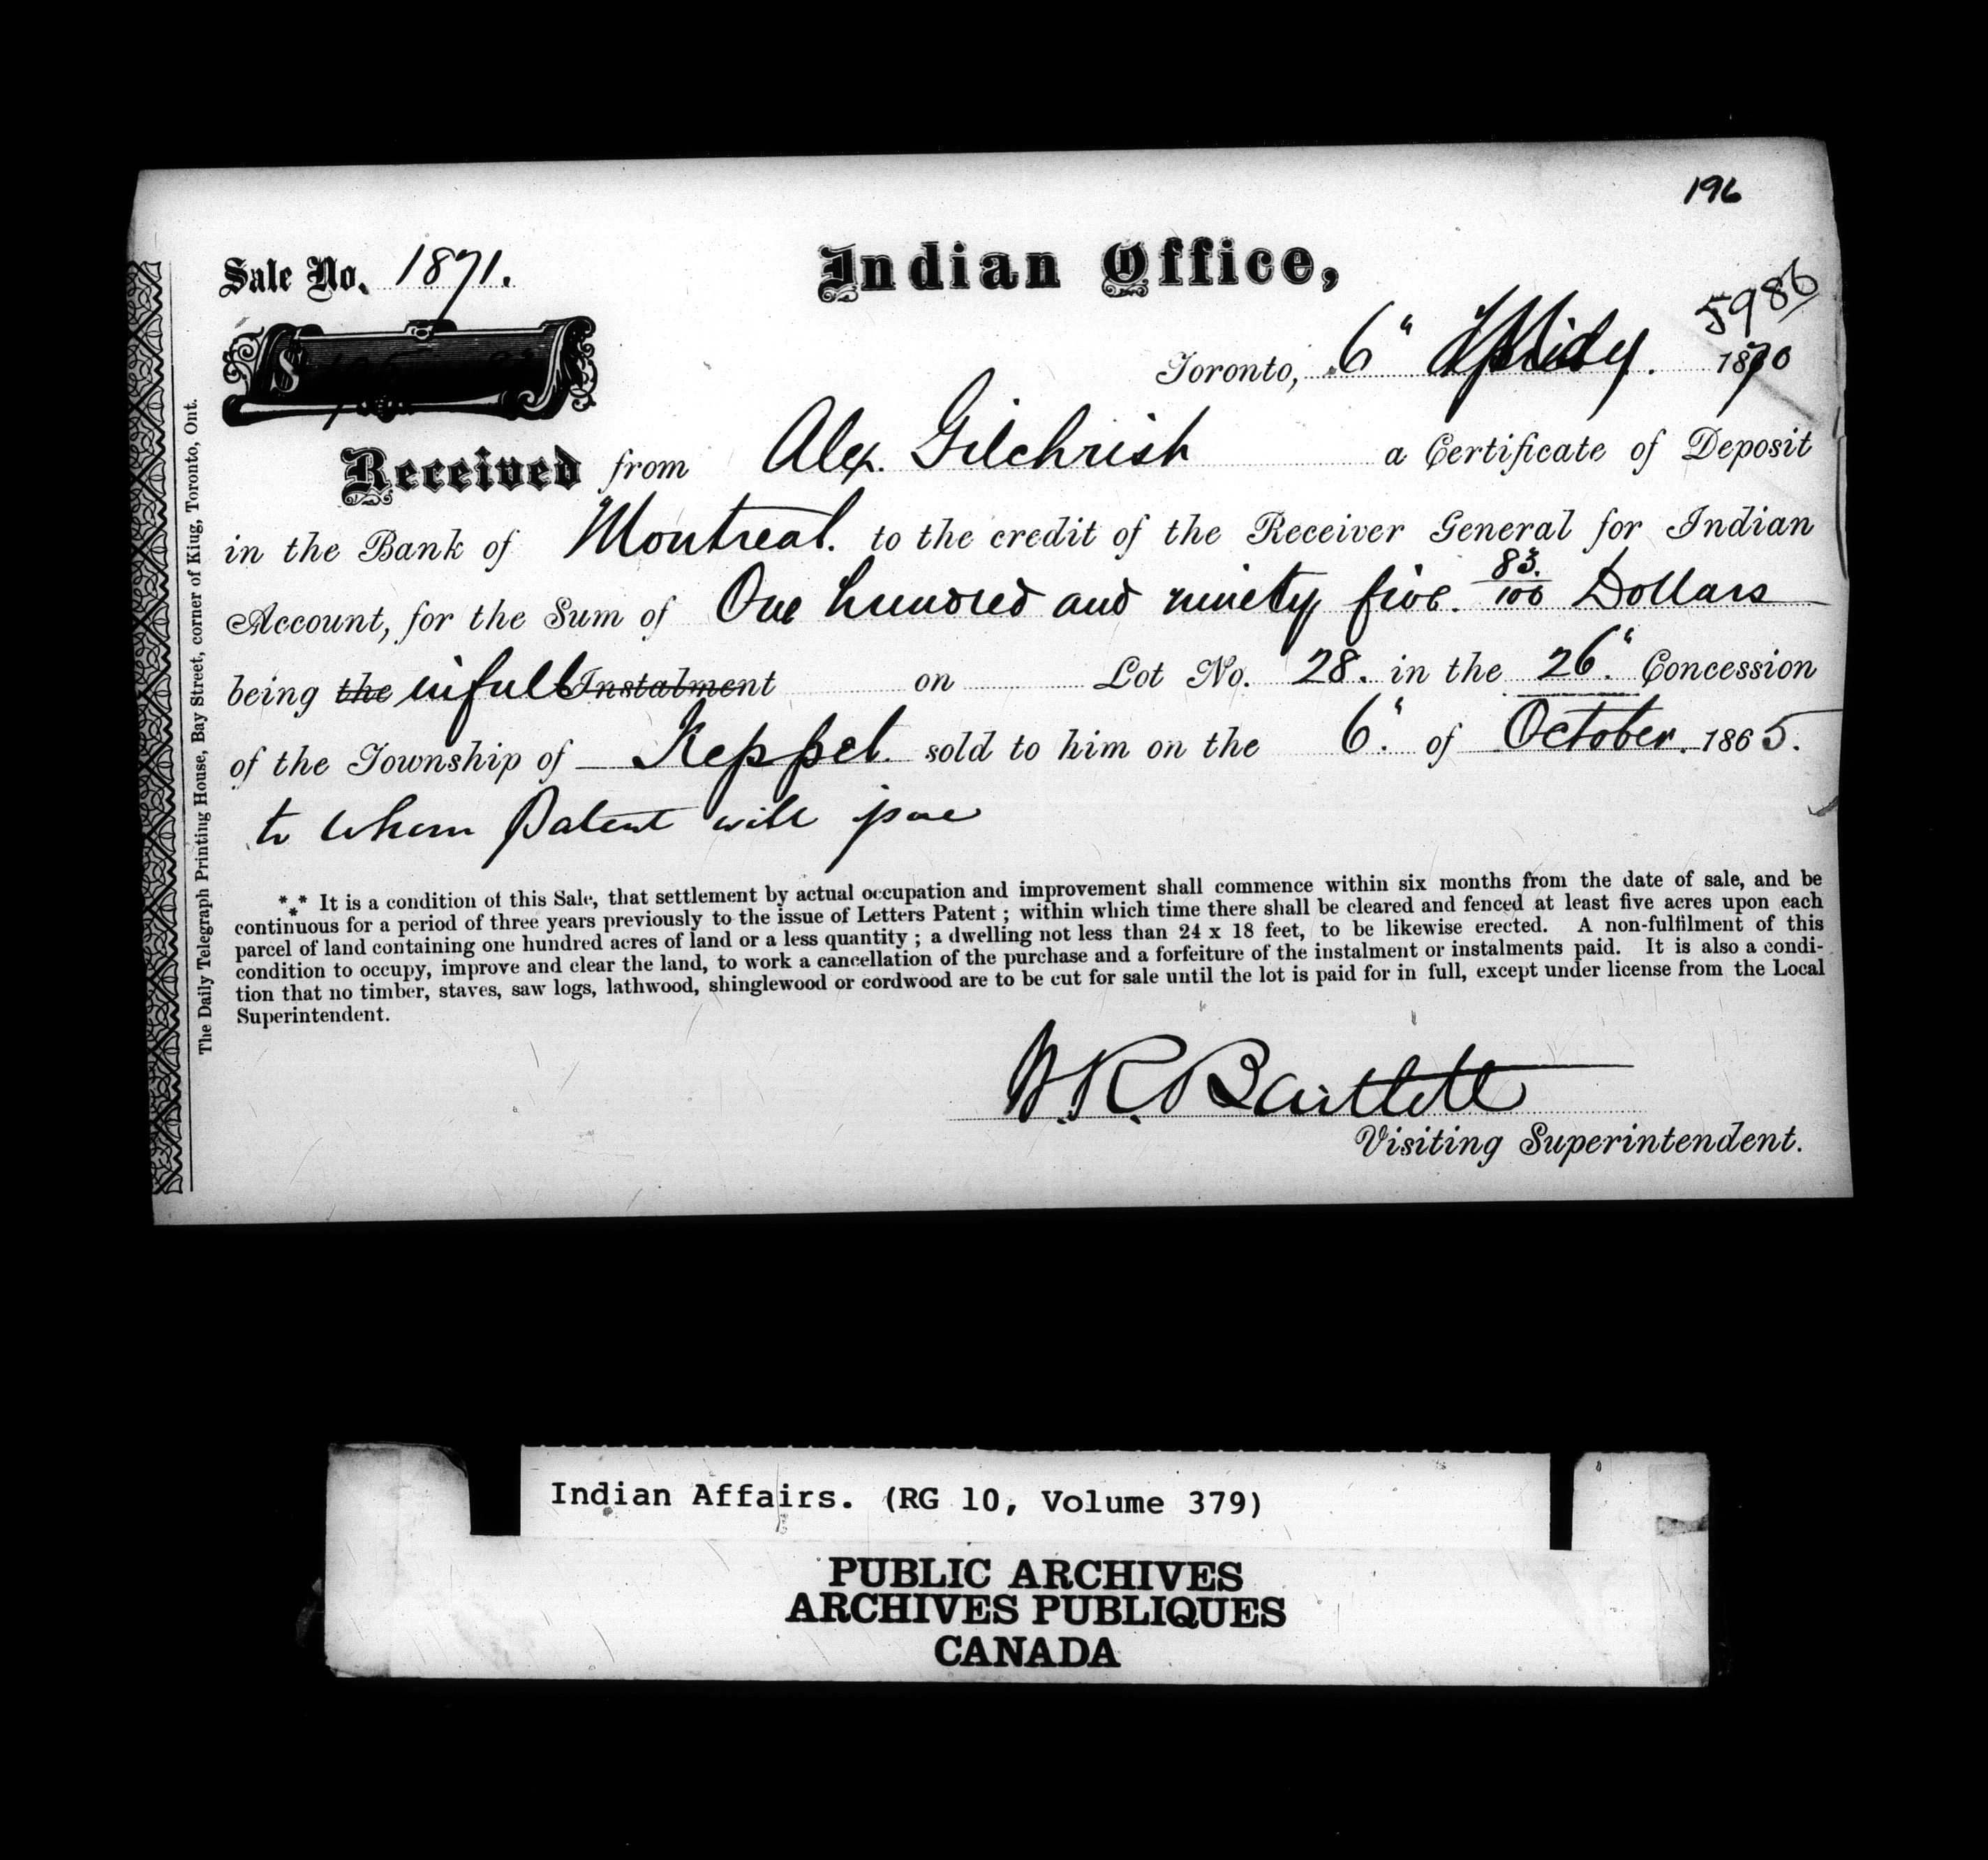 196
Sale No. 1871.
Indian Office,
5986
$
Toronto, 6" 1870
Received from Alex. Gilchrist a Certificate of Deposit
in the Bank of Montreal. to the credit of the Receiver General for Indian
Account, for the Sum of One hundred and ninety five. 83/100 Dollars
being the in full Instalment on Lot No. 28. in the 26". Concession
of the Township of Keppel. sold to him on the 6". of October. 1865.
to whom Patent will issue
*** It is a condition of this Sale, that settlement by actual occupation and improvement shall commence within six months from the date of sale, and be
continuous for a period of three years previously to the issue of Letters Patent ; within which time there shall be cleared and fenced at least five acres upon each
parcel of land containing one hundred acres of land or a less quantity ; a dwelling not less than 24 x 18 feet, to be likewise erected. A non-fulfilment of this
condition to occupy, improve and clear the land, to work a cancellation of the purchase and a forfeiture of the instalment or instalments paid. It is also a condi-
tion that no timber, staves, saw logs, lathwood, shinglewood or cordwood are to be cut for sale until the lot is paid for in full, except under license from the Local
Superintendent.
W. R. Bartlett
Visiting Superintendent.
The Daily Telegraph Printing House, Bay Street, corner of King, Toronto, Ont.
Indian Affairs. (RG 10, Volume 379)
PUBLIC ARCHIVES
ARCHIVES PUBLIQUES
CANADA